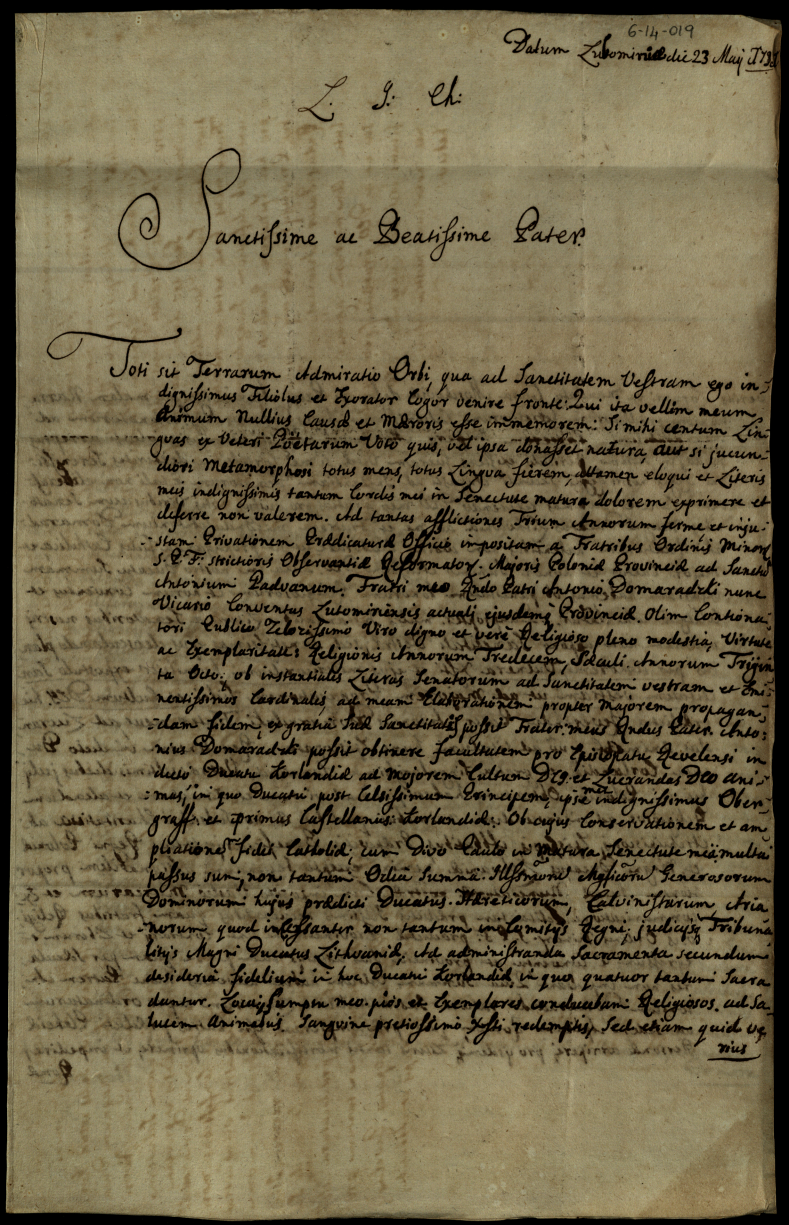 6-14-019
Datum Lutominiæ die 23 Maij
L. J. Ch:
Sanctissime ac Beatissime Pater.
Toti sit Terrarum Admiratio Orbi, qua ad Sanctitatem Vestram ego in-
dignissimus Filiolus et Exorator cogor venire fronte. Qui ita vellem meum
Animum Nullius Causæ et Mæroris esse immemorem: Si mihi centum Lin-
guas ex Veteri Pöetarum Voto quis, vel ipsa donasset natura, aut si jucun-
diori Metamorphosi totus mens, totus Lingua fierem, attamen eloqui et Literis
meis indignissimis tantum Cordis mei in Senectute matura dolorem exprimere et
deferre non valerem. Ad tantas afflictiones Trium Annorum ferme et inju-
stam Privationem Prædicaturæ Officio impositam a Fratribus Ordinis Minorũ
S. P. F. strictioris Observantiæ Reformator. Majoris Poloniæ Provinciæ ad Sanctũ
Antonium Paduanum. Fratri meo Rndo Patri Antonio Domaradzki nunc
Vicario Conventus Lutominensis actuali ejusdemq Provinciæ. Olim Conciona-
tori Publico Zelozissimo Viro digno et verè Religioso pleno modestia, Virtute
ac Exemplaritate: Religionis Annorum Tredecem, Sæculi Annorum Trigin
ta Octo: ob instantiales Literas Senatorum ad Sanctitatem vestram et Emi-
nentissimos Cardinales, ad meam Elaborationem propter majorem propagan-
dam fidem, ex gratia Suæ Sanctitatis possit Frater meus Rndus Pater Anto-
nius Domaradzki possit obtinere facultatem pro Episcopatu Revelensi in
dicto Ducatu Korlandiæ ad majorem Cultum D et Lucrandas Deo ani-
mas, in quo Ducatu post Celsissimum Principem, ipsemet indignissimus Ober-
graff. et primus Castellanus Korlandiæ. Ob cujus Conservationem et am
pliationẽ fidei Catholiæ, cum Divo Paulo in matura Senectute mea multa
passus sum, non tantum Odia Summa Illstrium Magnificorũ Generosorum
Dominorum hujus prædicti Ducatus Hæreticorum, Calvinistarum Aria
norum quod incessanter non tantum in Comitijs Regni, judicijsq Tribuna
litijs Magni Ducatus Lithvaniæ, Ad administranda Sacramenta secundum
desideria fidelium in hoc Ducatu Korlandiæ in quo quatuor tantum Sacra
dantur Loca, Sumptu meo pios et Exemplares conducebam Religiosos ad Sa-
lutem Animabus Sanguine pretiossimo Xsti redemptis, Sed etiam quid ve
rius